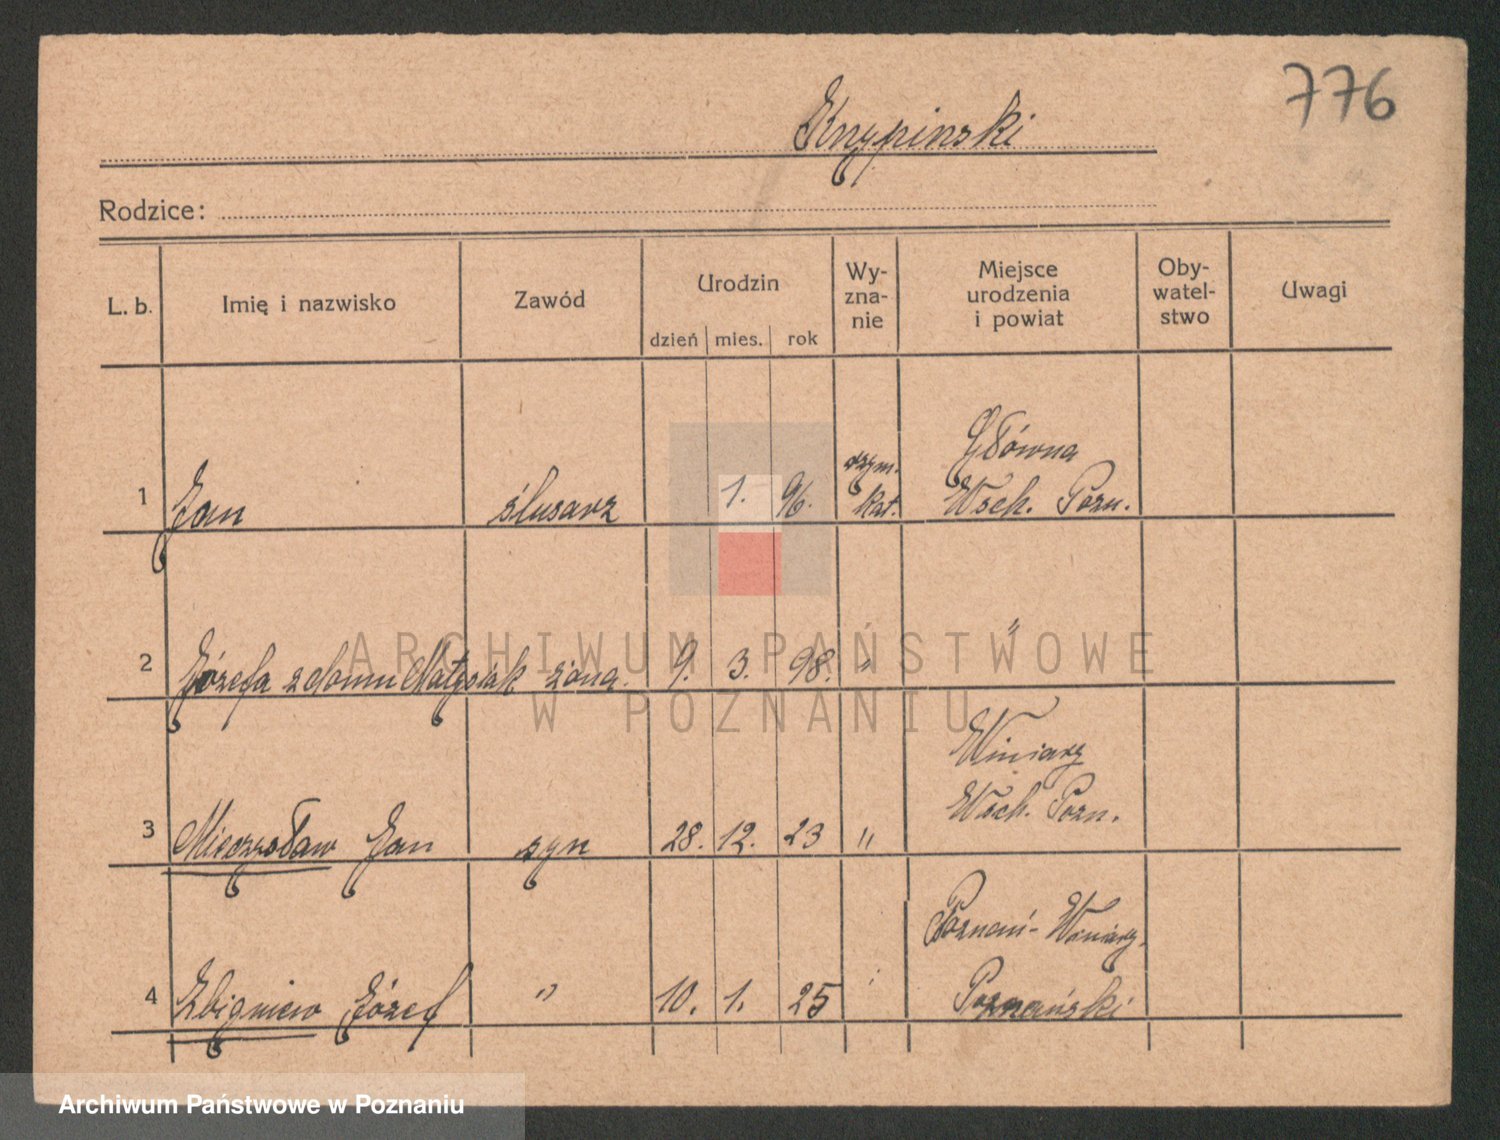 776
Knypinski
Rodzice:
L. b. Imię i nazwisko Zawód Urodzin dzień mies. rok Wy-zna-nie Miejsce urodzenia i powiat Oby-watel-stwo Uwagi
1 Jan ślusarz 1. 96. rzym. kat. Główna Wsch. Pozn.
2 Józefa z domu Matysiak żona. 9. 3. 98. " "
3 Mieczysław Jan syn 28. 12. 23 " Winiary Wsch. Pozn.
4 Zbigniew Józef " 10. 1. 25 " Poznań-Winiary. Poznański
ARCHIWUM PAŃSTWOWE
W POZNANIU
Archiwum Państwowe w Poznaniu